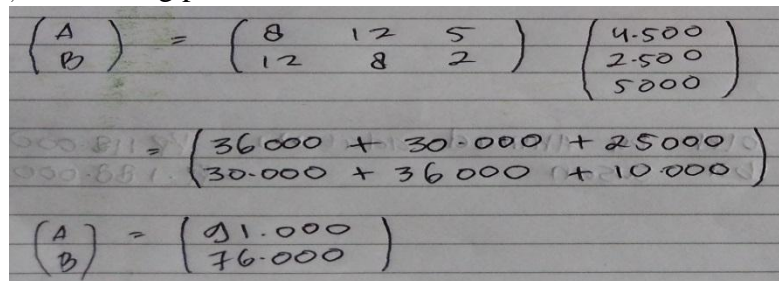 (A B) = (8 12 5 12 8 2) (4.500 2.500 5000)
= (36000 + 30.000 + 25000 30.000 + 36000 + 10.000)
(A B) = (91.000 76.000)